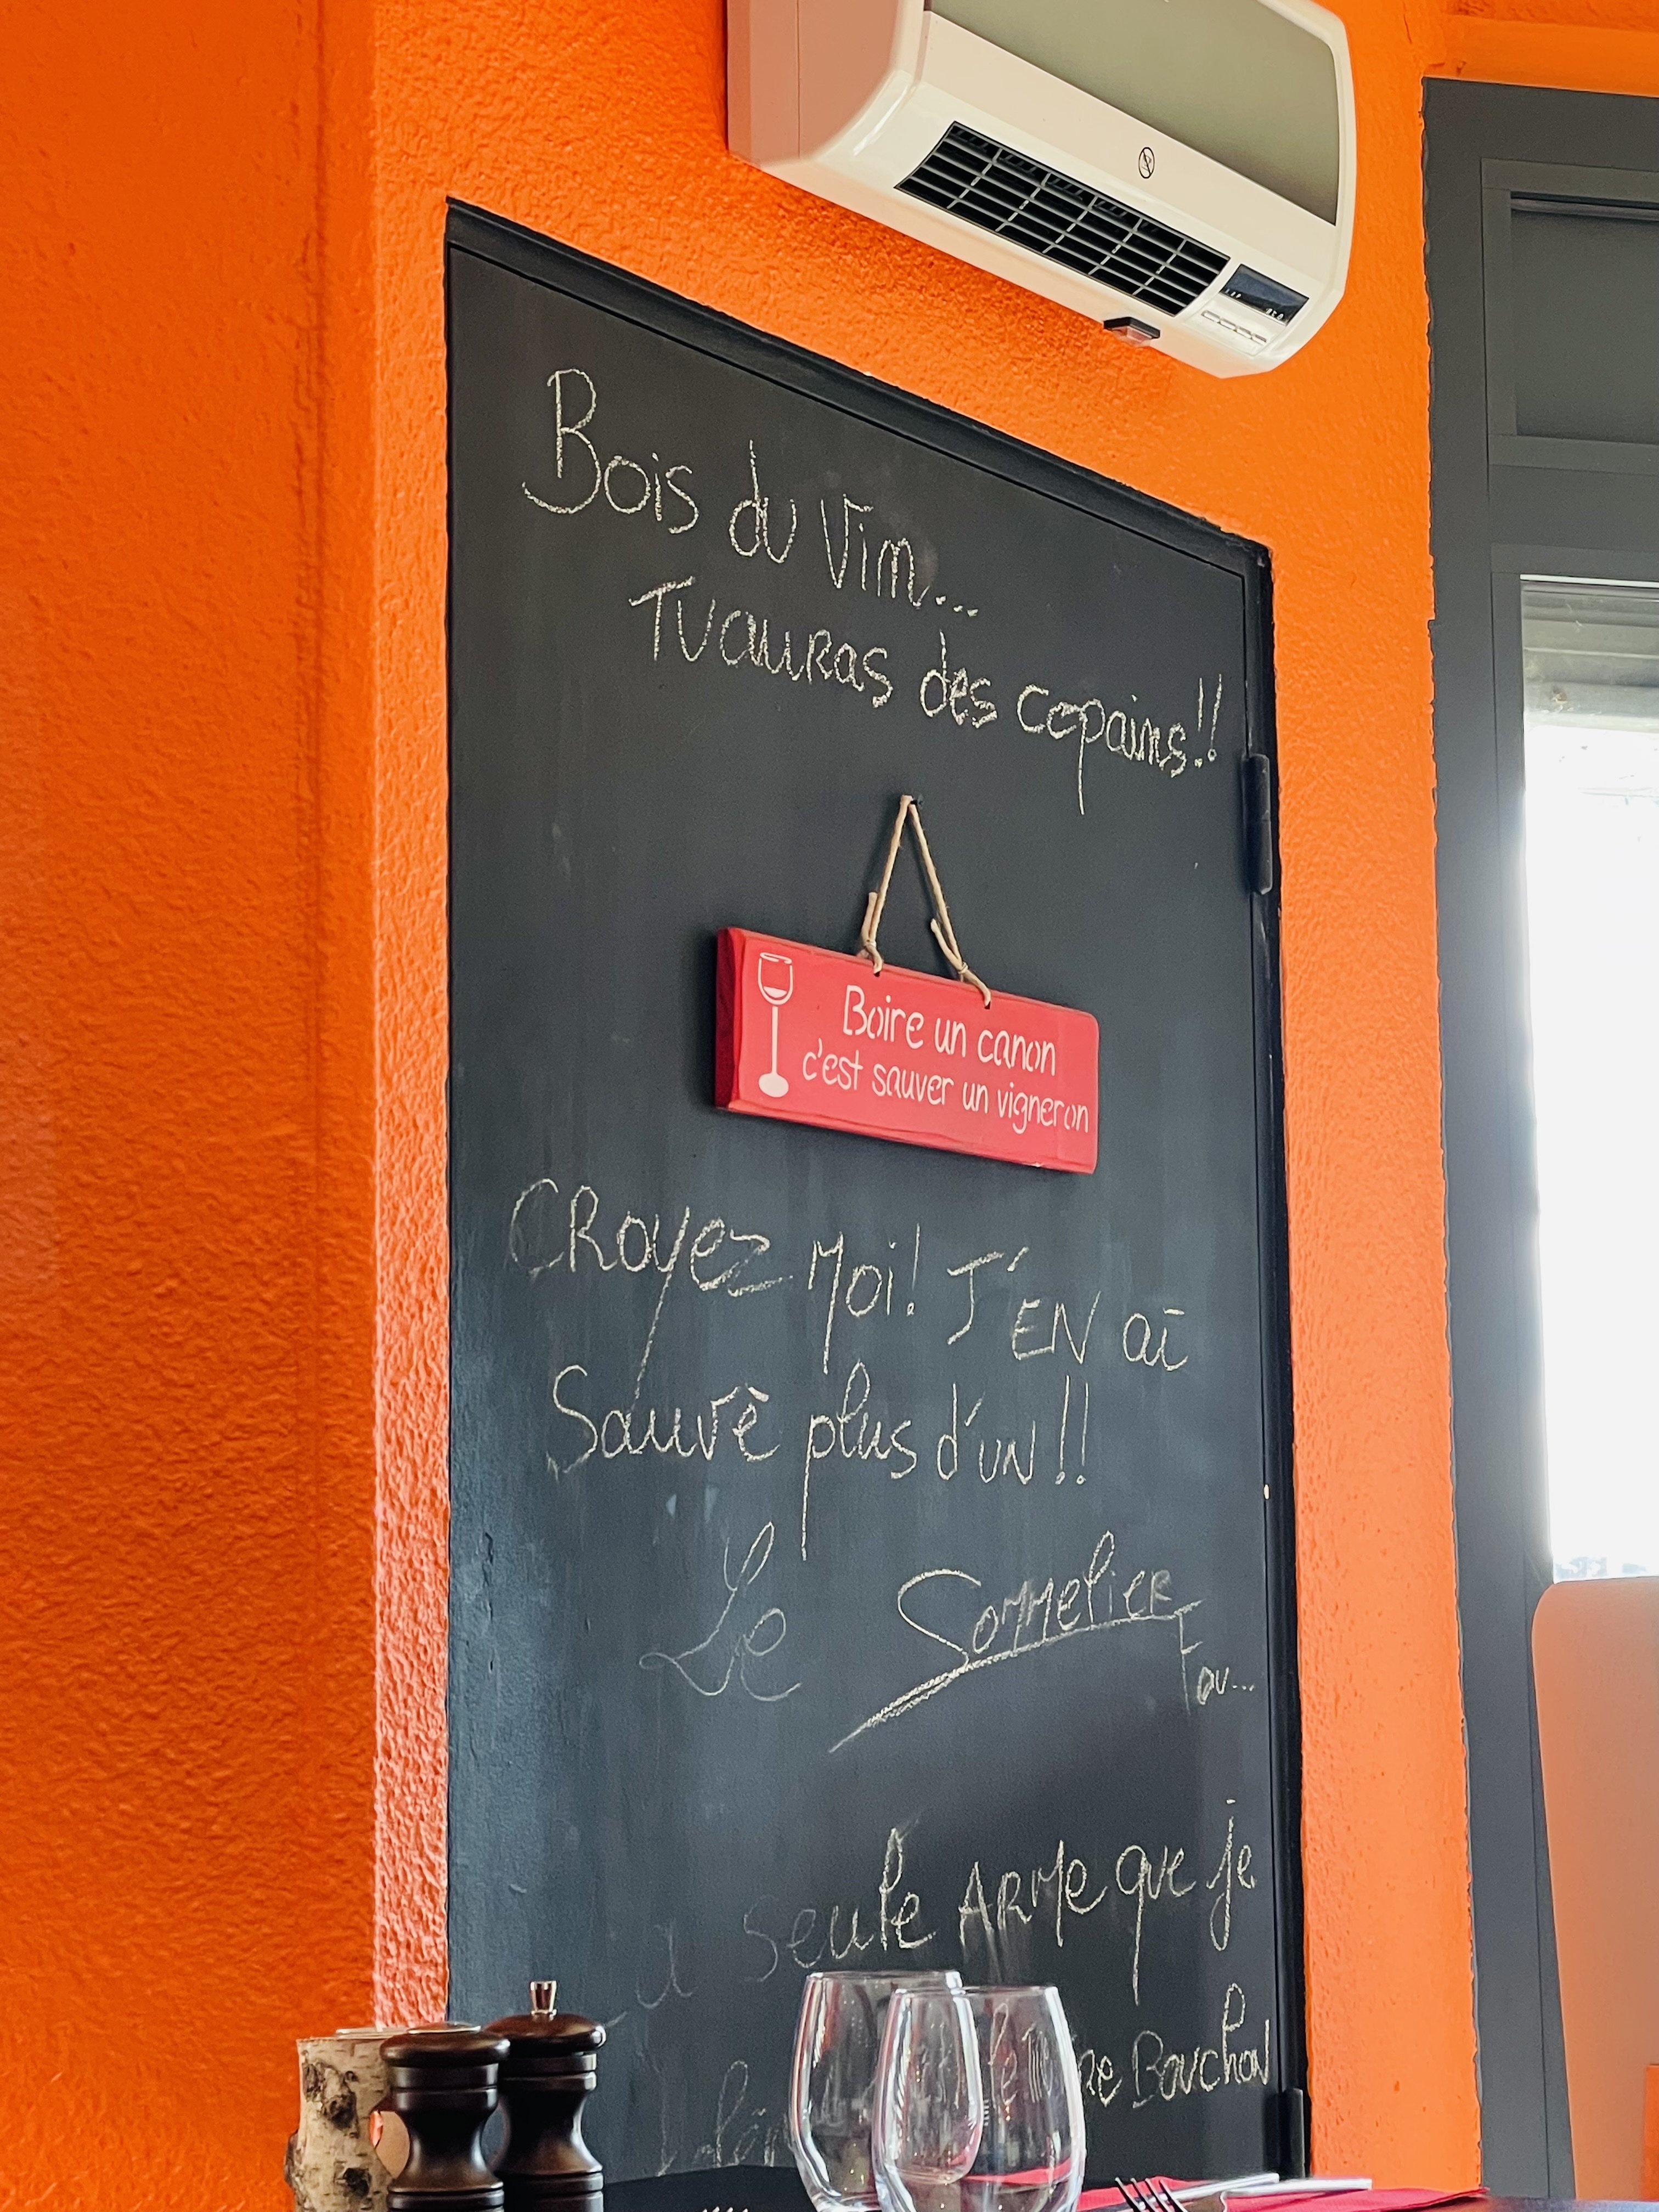 Bois du Vin...
Tu auras des copains!!
Boire un canon
c'est sauver un vigneron
CRoyez Moi! J'EN ai
Sauvé plus d'un!!
Le Sommelier
Fou...
La seule ARMe que je
Bouchon